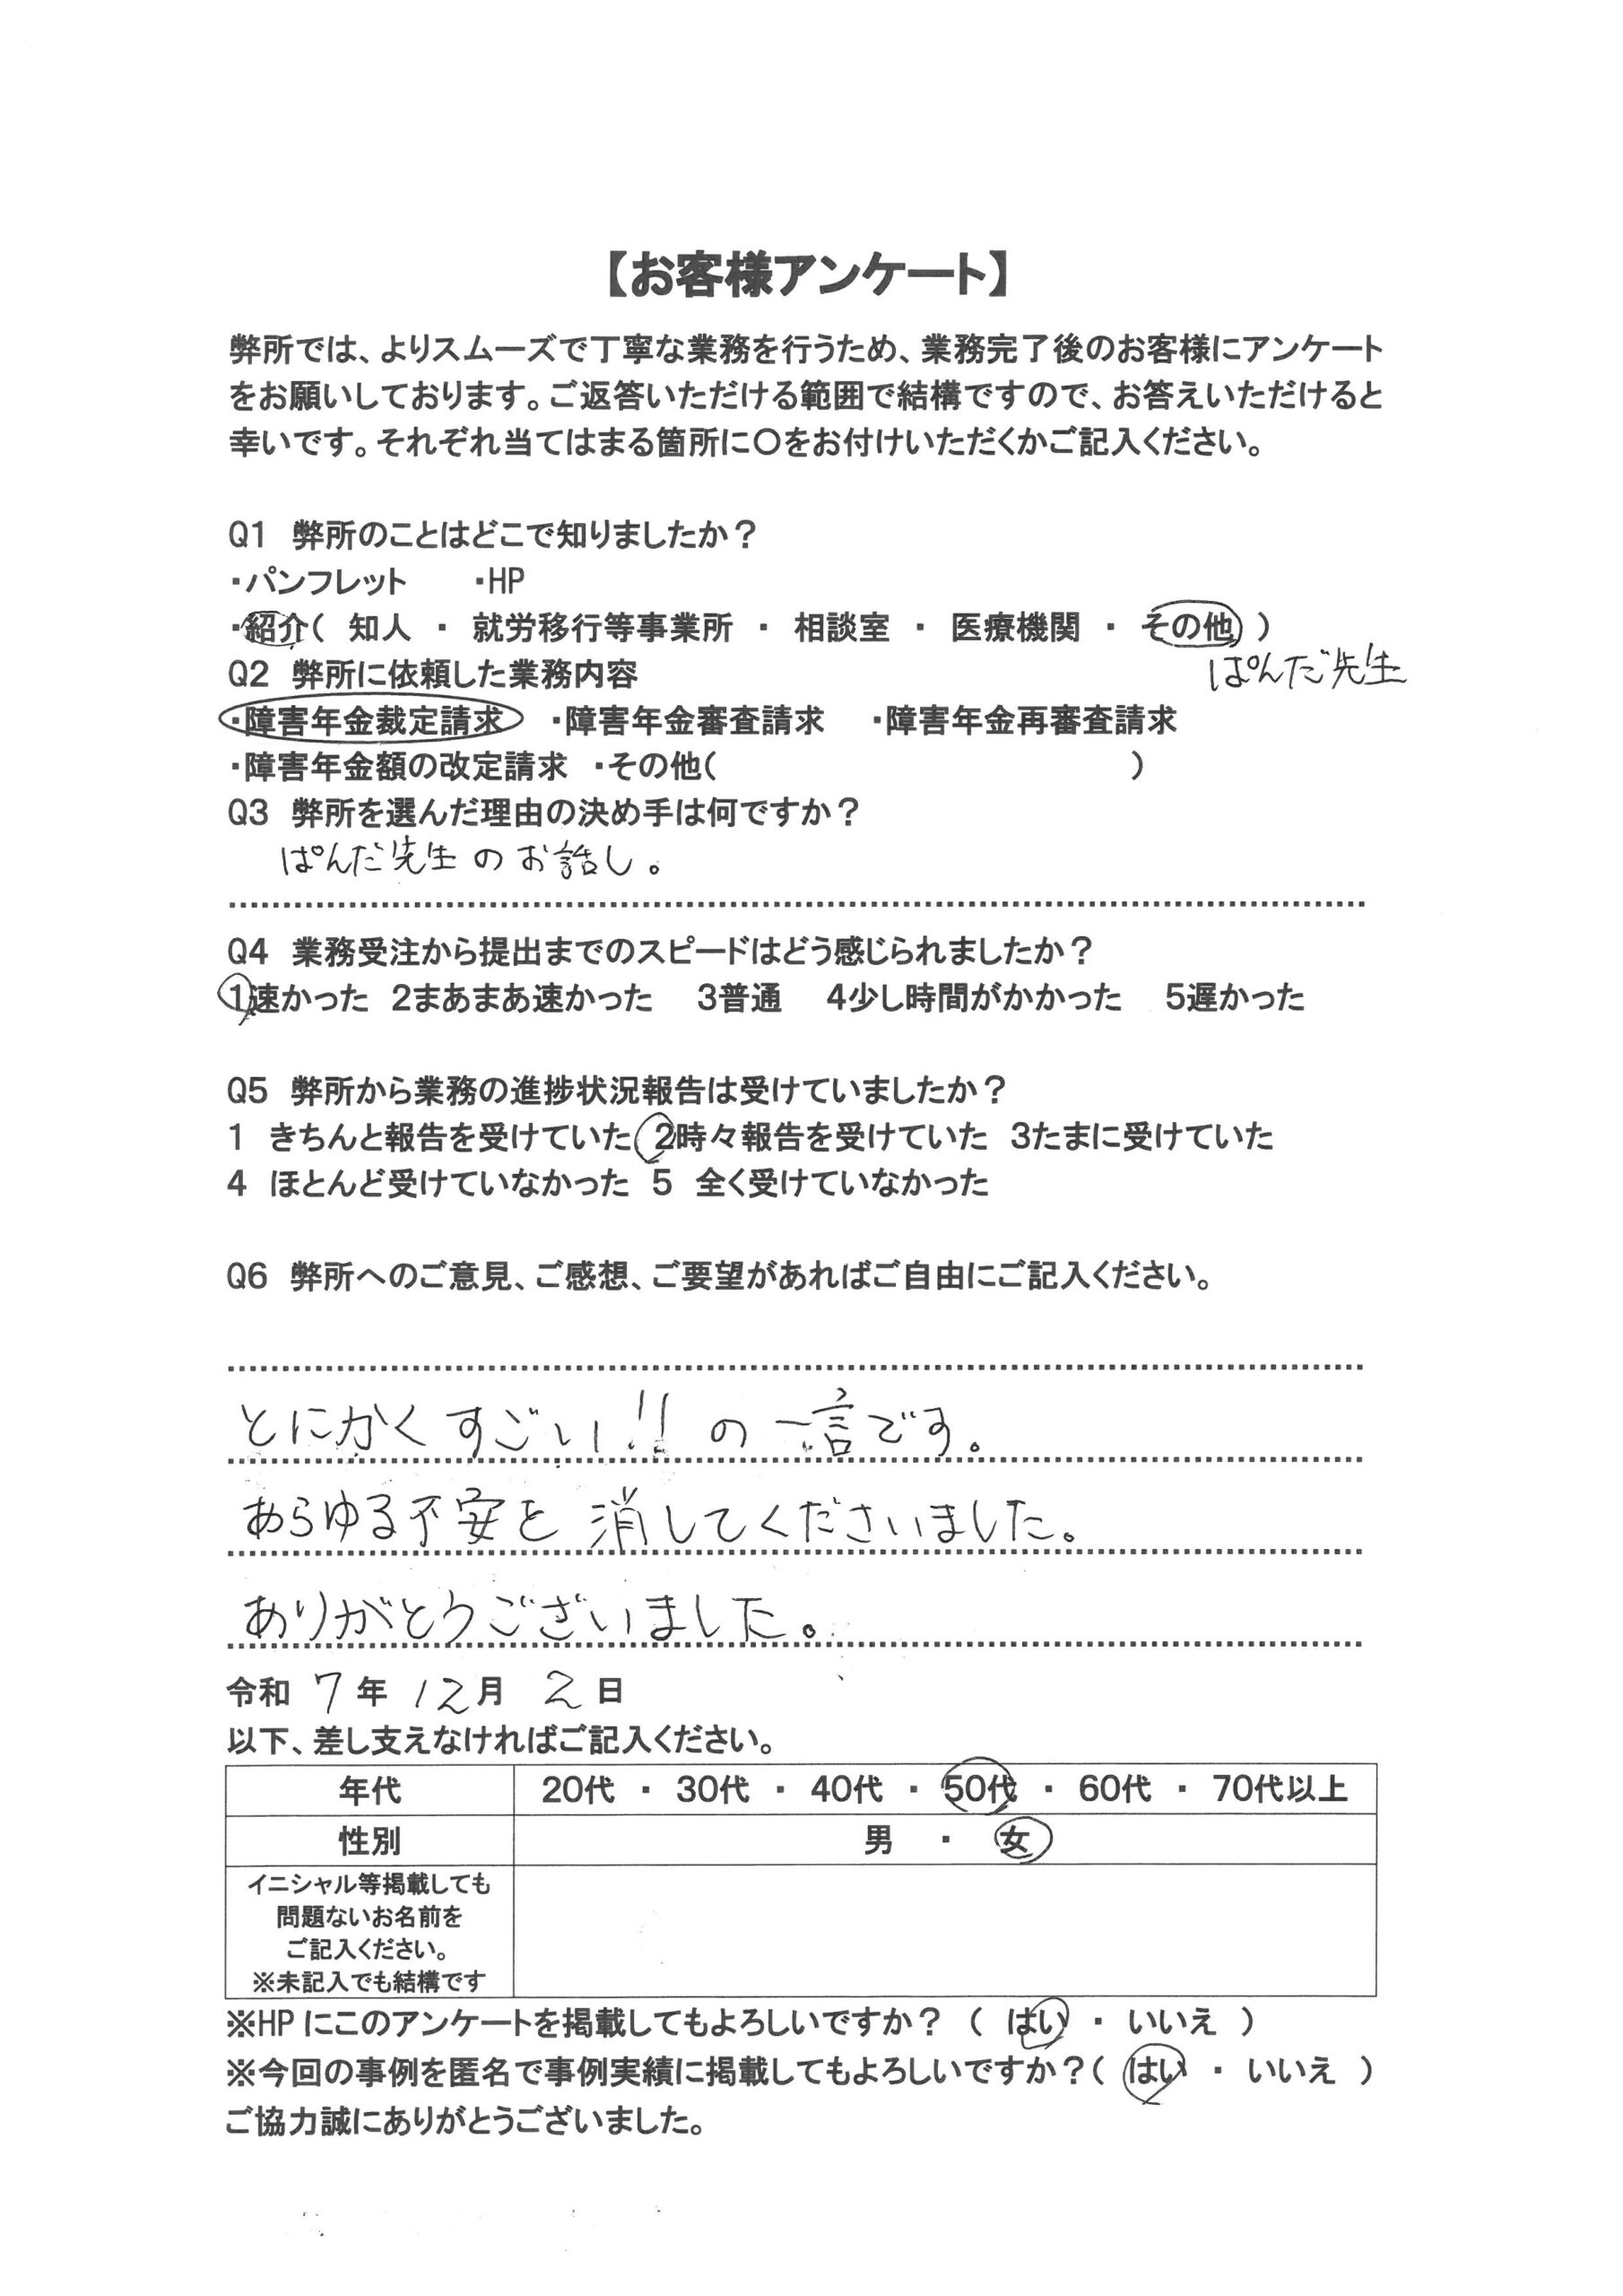 【お客様アンケート】
弊所では、よりスムーズで丁寧な業務を行うため、業務完了後のお客様にアンケート
をお願いしております。ご返答いただける範囲で結構ですので、お答えいただけると
幸いです。それぞれ当てはまる箇所に〇をお付けいただくかご記入ください。
Q1 弊所のことはどこで知りましたか？
・パンフレット ・HP
・紹介( 知人 ・ 就労移行等事業所 ・ 相談室 ・ 医療機関 ・ その他 )
ぱんだ先生
Q2 弊所に依頼した業務内容
・障害年金裁定請求 ・障害年金審査請求 ・障害年金再審査請求
・障害年金額の改定請求 ・その他( )
Q3 弊所を選んだ理由の決め手は何ですか？
ぱんだ先生のお話し。
Q4 業務受注から提出までのスピードはどう感じられましたか？
1速かった 2まあまあ速かった 3普通 4少し時間がかかった 5遅かった
Q5 弊所から業務の進捗状況報告は受けていましたか？
1 きちんと報告を受けていた 2時々報告を受けていた 3たまに受けていた
4 ほとんど受けていなかった 5 全く受けていなかった
Q6 弊所へのご意見、ご感想、ご要望があればご自由にご記入ください。
とにかくすごい!!の一言です。
あらゆる不安を消してくださいました。
ありがとうございました。
令和 7年 12月 2日
以下、差し支えなければご記入ください。
年代 20代 ・ 30代 ・ 40代 ・ 50代 ・ 60代 ・ 70代以上
性別 男 ・ 女
イニシャル等掲載しても
問題ないお名前を
ご記入ください。
※未記入でも結構です
※HPにこのアンケートを掲載してもよろしいですか？ ( はい ・ いいえ )
※今回の事例を匿名で事例実績に掲載してもよろしいですか？( はい ・ いいえ )
ご協力誠にありがとうございました。